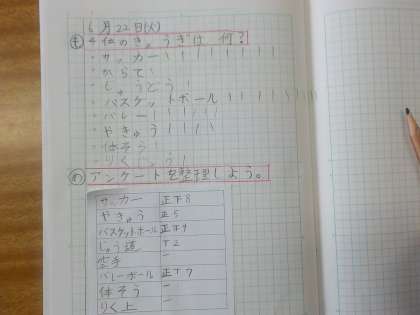 6月22日(火)
も 4位のきょうぎは何?
・サッカー
・からて
・じゅうどう
・バスケットボール
・バレー
・やきゅう
・体そう
・りくじょう
め アンケートを整理しよう。
サッカー 正下8
やきゅう 正5
バスケットボール 正下9
じゅう道 T2
空手 一
バレーボール 正T7
体そう 一
りく上 一